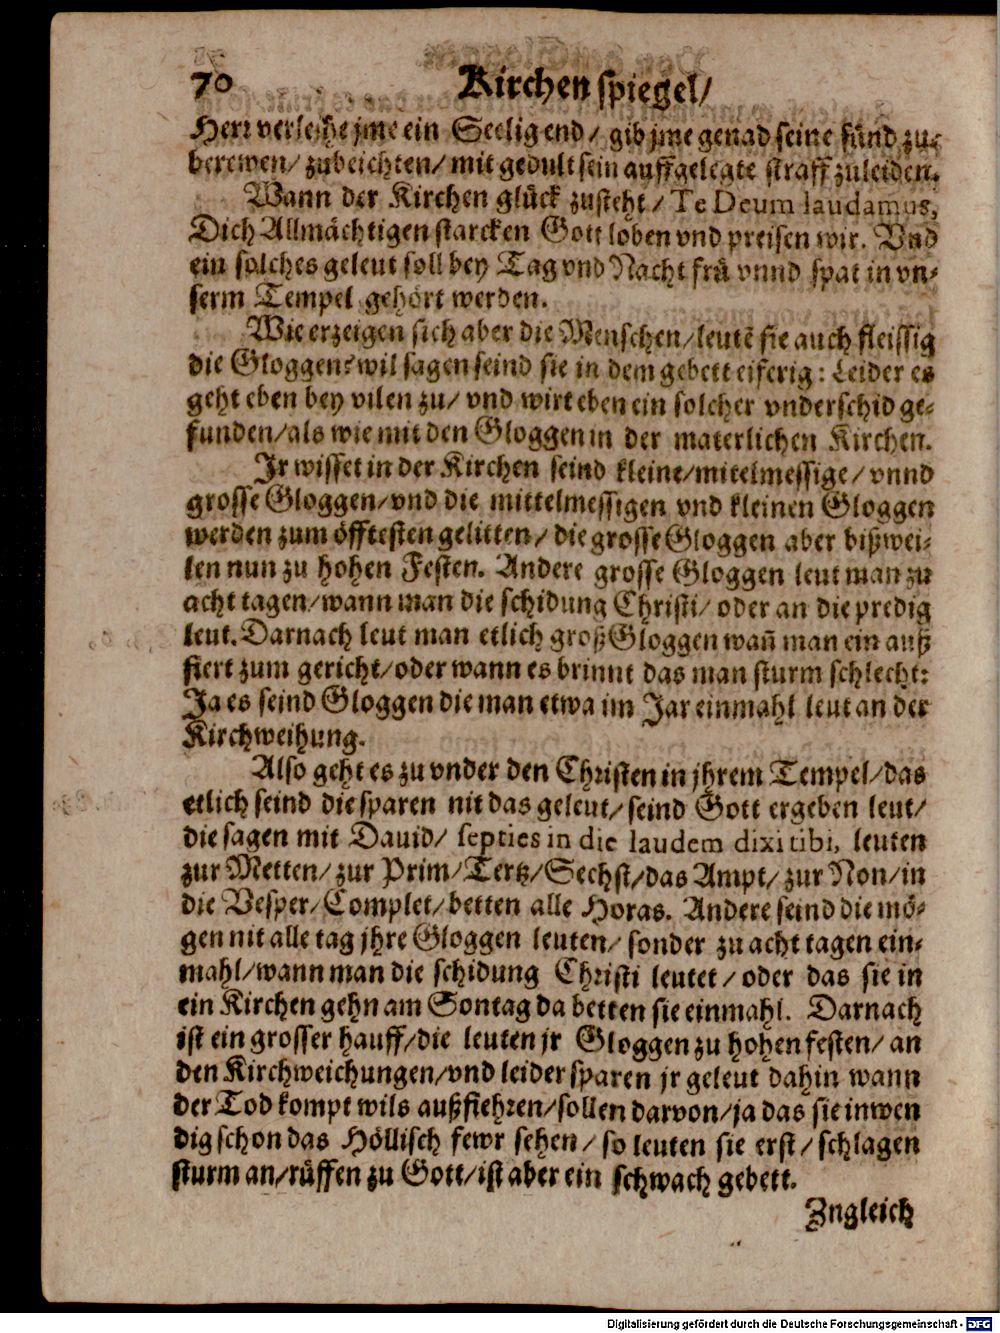 70 Kirchen spiegel/
Herr verleihe jme ein Seelig end/ gib jme genad seine sünd zu-
berewen/ zubeichten/ mit gedult sein auffgelegte straff zuleiden.
Wann der Kirchen glück zusteht/ Te Deum laudamus,
Dich Allmächtigen starcken Gott loben vnd preisen wir. Vnd
ein solches geleut soll bey Tag vnd Nacht frü vnnd spat in vn-
serm Tempel gehört werden.
Wie erzeigen sich aber die Menschen/ leutẽ sie auch fleissig
die Gloggen? wil sagen seind sie in dem gebett eiferig: Leider es
geht eben bey vilen zu/ vnd wirt eben ein solcher vnderschid ge-
funden/ als wie mit den Gloggen in der materlichen Kirchen.
Jr wisset in der Kirchen seind kleine/ mitelmessige/ vnnd
grosse Gloggen/ vnd die mittelmessigen vnd kleinen Gloggen
werden zum öfftesten gelitten/ die grosse Gloggen aber bißwei-
len nun zu hohen Festen. Andere grosse Gloggen leut man zu
acht tagen/ wann man die schidung Christi/ oder an die predig
leut. Darnach leut man etlich groß Gloggen wañ man ein auß
fiert zum gericht/ oder wann es brinnt das man sturm schlecht:
Ja es seind Gloggen die man etwa im Jar einmahl leut an der
Kirchweihung.
Also geht es zu vnder den Christen in jhrem Tempel/ das
etlich seind die sparen nit das geleut/ seind Gott ergeben leut/
die sagen mit Dauid/ septies in die laudem dixi tibi, leuten
zur Metten/ zur Prim/ Tertz/ Sechst/ das Ampt/ zur Non/ in
die Vesper/ Complet/ betten alle Horas. Andere seind die mö-
gen nit alle tag jhre Gloggen leuten/ sonder zu acht tagen ein-
mahl/ wann man die schidung Christi leutet/ oder das sie in
ein Kirchen gehn am Sontag da betten sie einmahl. Darnach
ist ein grosser hauff/ die leuten jr Gloggen zu hohen festen/ an
den Kirchweichungen/ vnd leider sparen jr geleut dahin wann
der Tod kompt wils außfiehren/ sollen darvon/ ja das sie inwen
dig schon das Höllisch fewr sehen/ so leuten sie erst/ schlagen
sturm an/ rüffen zu Gott/ ist aber ein schwach gebett.
Zngleich
Digitalisierung gefördert durch die Deutsche Forschungsgemeinschaft - DFG